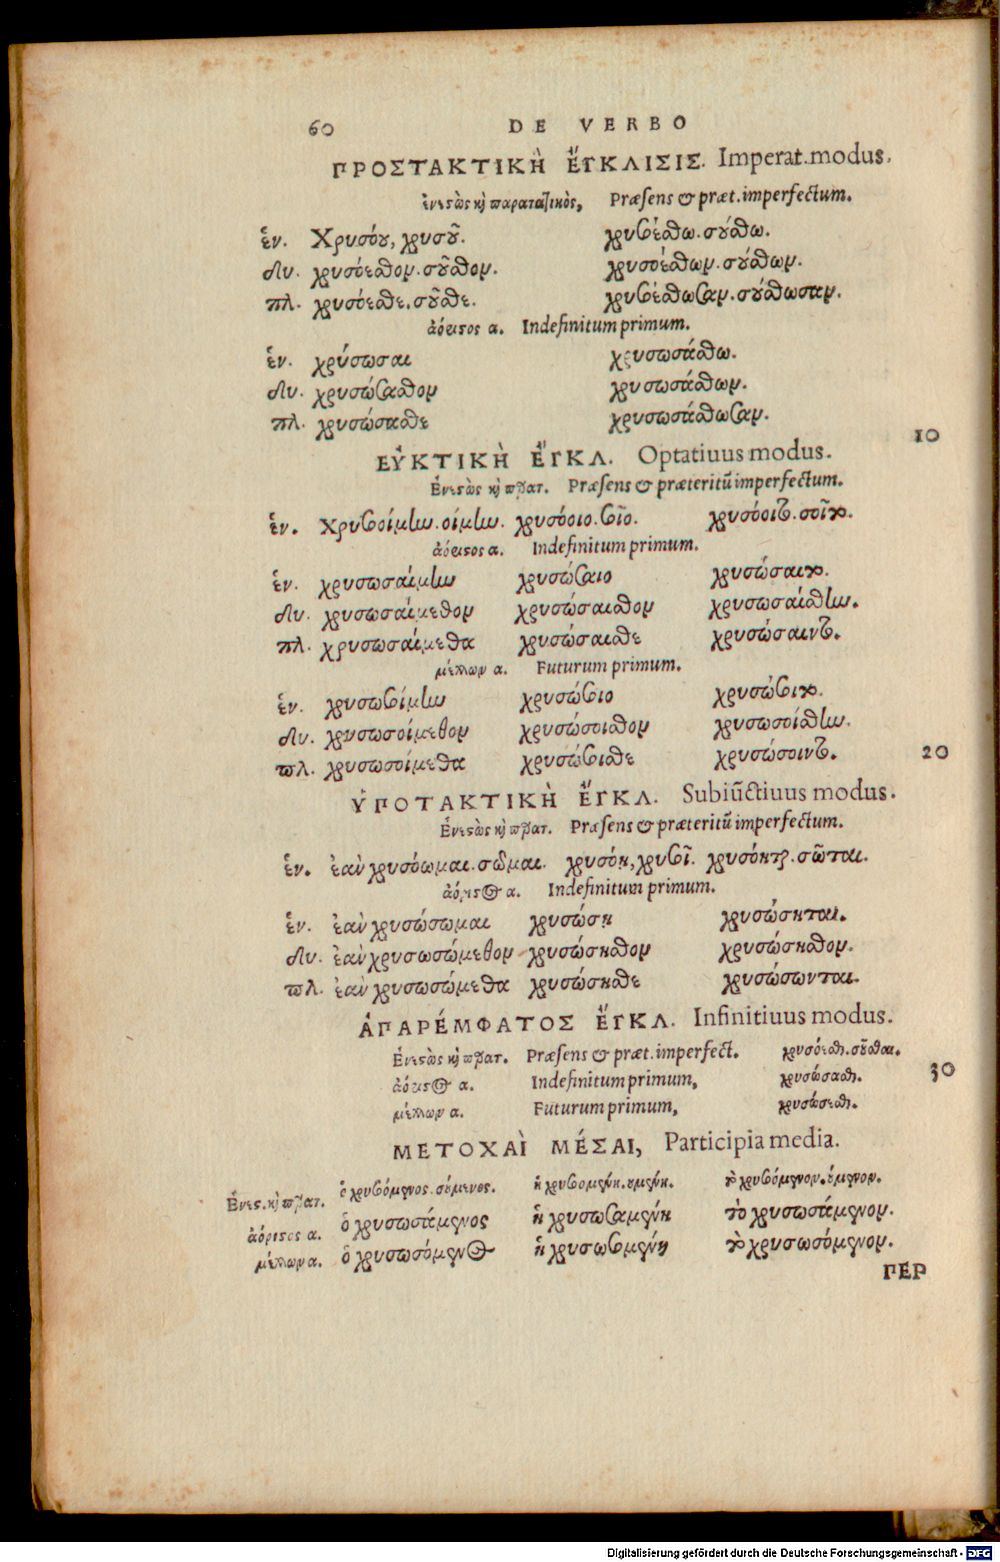 60 DE VERBO
ΠΡΟΣΤΑΚΤΙΚῊ ἜΓΚΛΙΣΙΣ. Imperat.modus.
ἐνεστὼς κὶ παρατατικὸς, Præsens & præt.imperfectum.
ἑν. Χρυσόου, χρυσοῦ. χρυσοέσθω. σούσθω.
δυ. χρυσόεσθον. σοῦσθον. χρυσοέσθων. σούσθων.
πλ. χρυσόεσθε. σοῦσθε. χρυσοέσθωσαν. σούσθωσαν.
ἀόριστος α. Indefinitum primum.
ἑν. χρύσωσαι χρυσωσάσθω.
δυ. χρυσώσασθον χρυσωσάσθων.
πλ. χρυσώσασθε χρυσωσάσθωσαν.
10
ΕΥ̓ΚΤΙΚῊ ἜΓΚΛ. Optatiuus modus.
Ἐνεστὼς κὶ πρατ. Præsens & præteritū imperfectum.
ἑν. Χρυσοοίμην. οίμην. χρυσόοιο. σοῖο. χρυσόοιτο. σοῖτο.
ἀόριστος α. Indefinitum primum.
ἑν. χρυσωσαίμην χρυσώσαιο χρυσώσαιτο.
δυ. χρυσωσαίμεθον χρυσώσαισθον χρυσωσαίσθην.
πλ. χρυσωσαίμεθα χρυσώσαισθε χρυσώσαιντο.
μέλλων α. Futurum primum.
ἑν. χρυσωσοίμην χρυσώσοιο χρυσώσοιτο.
δυ. χρυσωσοίμεθον χρυσώσοισθον χρυσωσοίσθην.
πλ. χρυσωσοίμεθα χρυσώσοισθε χρυσώσοιντο. 20
ὙΠΟΤΑΚΤΙΚῊ ἜΓΚΛ. Subiūctiuus modus.
Ἐνεστὼς κὶ πρατ. Præsens & præteritū imperfectum.
ἑν. ἐὰν χρυσόωμαι. σῶμαι. χρυσόῃ, χρυσοῖ. χρυσόηται. σῶται.
ἀόριστος α. Indefinitum primum.
ἑν. ἐὰν χρυσώσωμαι χρυσώσῃ χρυσώσηται.
δυ. ἐὰν χρυσωσώμεθον χρυσώσησθον χρυσώσησθον.
πλ. ἐὰν χρυσωσώμεθα χρυσώσησθε χρυσώσωνται.
ἈΠΑΡΈΜΦΑΤΟΣ ἜΓΚΛ. Infinitiuus modus.
Ἐνεστὼς κὶ πρατ. Præsens & præt.imperfect. χρυσόεσθαι. σοῦσθαι.
ἀόριστος α. Indefinitum primum, χρυσώσασθαι. 30
μέλλων α. Futurum primum, χρυσώσεσθαι.
ΜΕΤΟΧΑῚ ΜΈΣΑΙ, Participia media.
Ἐνεσ. κὶ πρατ. ὁ χρυσοόμενος. σούμενος. ἡ χρυσοομένη. ουμένη. τὸ χρυσοόμενον. ούμενον.
ἀόριστος α. ὁ χρυσωσάμενος ἡ χρυσωσαμένη τὸ χρυσωσάμενον.
μέλλων α. ὁ χρυσωσόμενος ἡ χρυσωσομένη τὸ χρυσωσόμενον.
ΠΕΡ
Digitalisierung gefördert durch die Deutsche Forschungsgemeinschaft - DFG